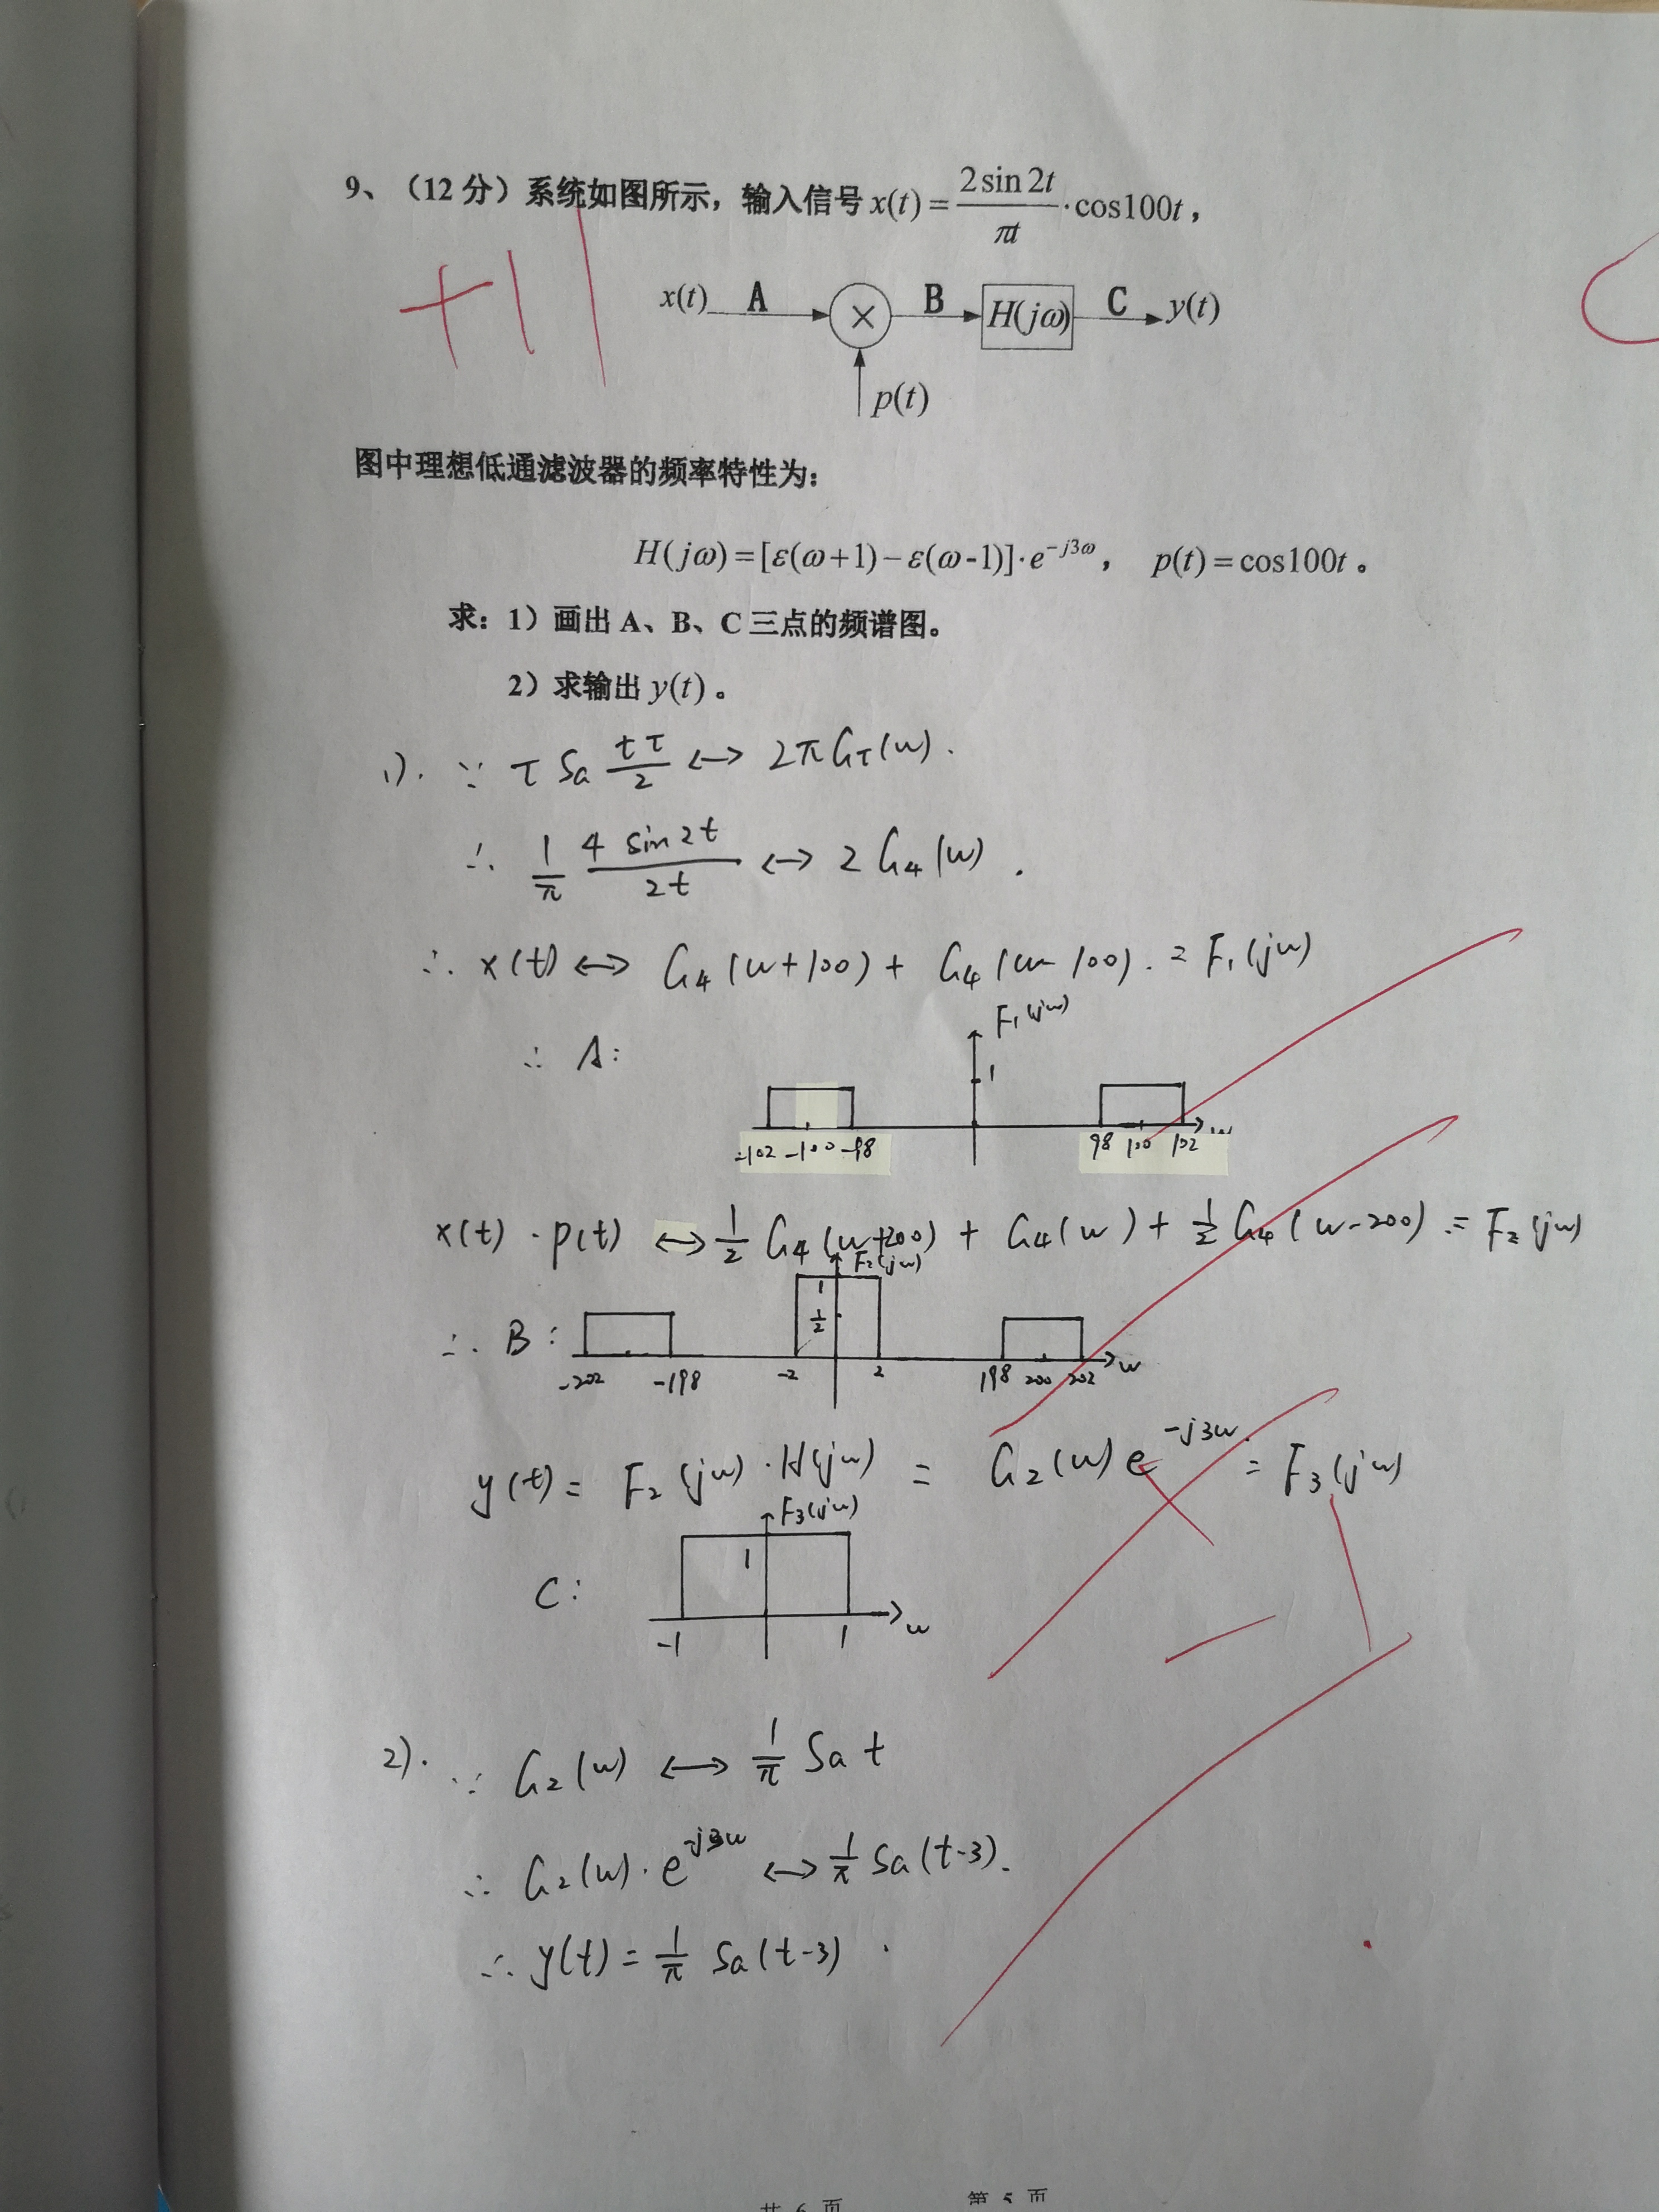 9、(12 分) 系统如图所示，输入信号 x(t) = 2sin2t / πt · cos100t，
+11
x(t) A × B H(jω) C y(t)
p(t)
图中理想低通滤波器的频率特性为：
H(jω) = [ε(ω+1) − ε(ω-1)]·e^{−j3ω}， p(t) = cos100t 。
求：1）画出 A、B、C 三点的频谱图。
2）求输出 y(t) 。
1). ∵ τ Sa tτ/2 ↔ 2π Gτ(w) .
∴ 1/π 4 sin2t / 2t ↔ 2 G₄(w) .
∴ x(t) ↔ G₄(w+100) + G₄(w-100) . = F₁(jw)
F₁(jw)
∴ A:
1
-102 -100 -98 98 100 102 w
x(t) · p(t) ↔ 1/2 G₄(w+200) + G₄(w) + 1/2 G₄(w-200) = F₂(jw)
F₂(jw)
1
1/2
∴ B:
-202 -198 -2 2 198 200 202 w
y(t) = F₂(jw) · H(jw) = G₂(w) e^{-j3w} = F₃(jw)
F₃(jw)
1
C:
-1 1 w
2). ∵ G₂(w) ↔ 1/π Sa t
∴ G₂(w) · e^{-j3w} ↔ 1/π Sa(t-3).
∴ y(t) = 1/π Sa(t-3) .
共 6 页 第 5 页